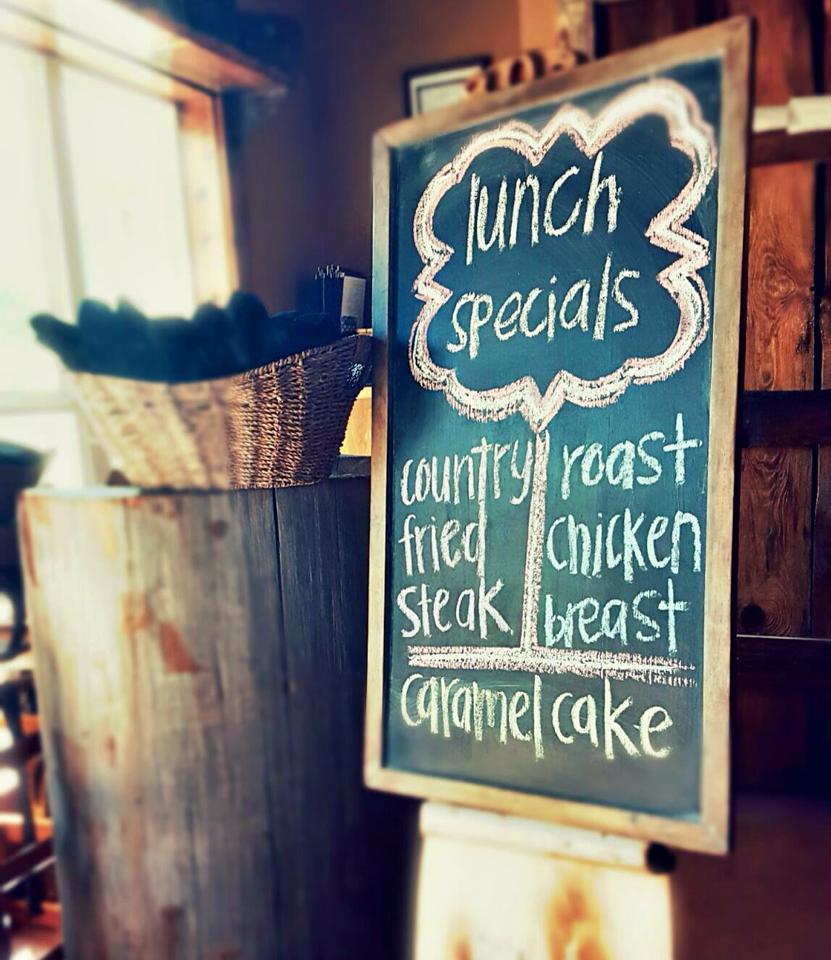 lunch
specials
country
fried
steak
roast
chicken
breast
caramel cake